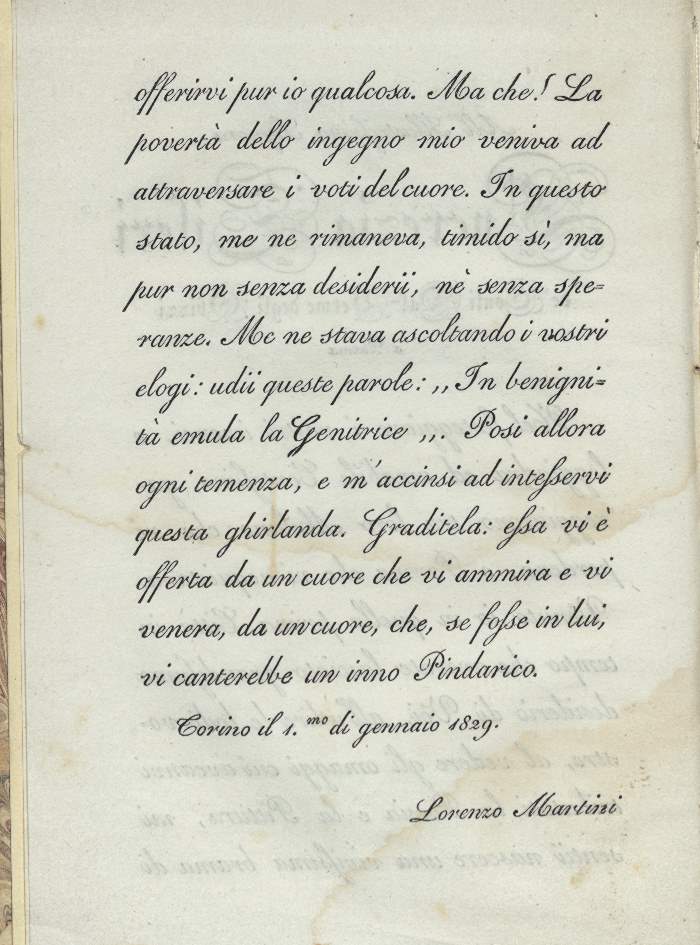 offerirvi pur io qualcosa. Ma che! La
povertà dello ingegno mio veniva ad
attraversare i voti del cuore. In questo
stato, me ne rimaneva, timido sì, ma
pur non senza desiderii, nè senza spe=
ranze. Me ne stava ascoltando i vostri
elogi: udii queste parole: ,, In benigni=
tà emula la Genitrice ,,. Posi allora
ogni temenza, e m'accinsi ad inteſservi
questa ghirlanda. Graditela: eſsa vi è
offerta da un cuore che vi ammira e vi
venera, da un cuore, che, se foſse in lui,
vi canterebbe un inno Pindarico.
Torino il 1.mo di gennaio 1829.
Lorenzo Martini